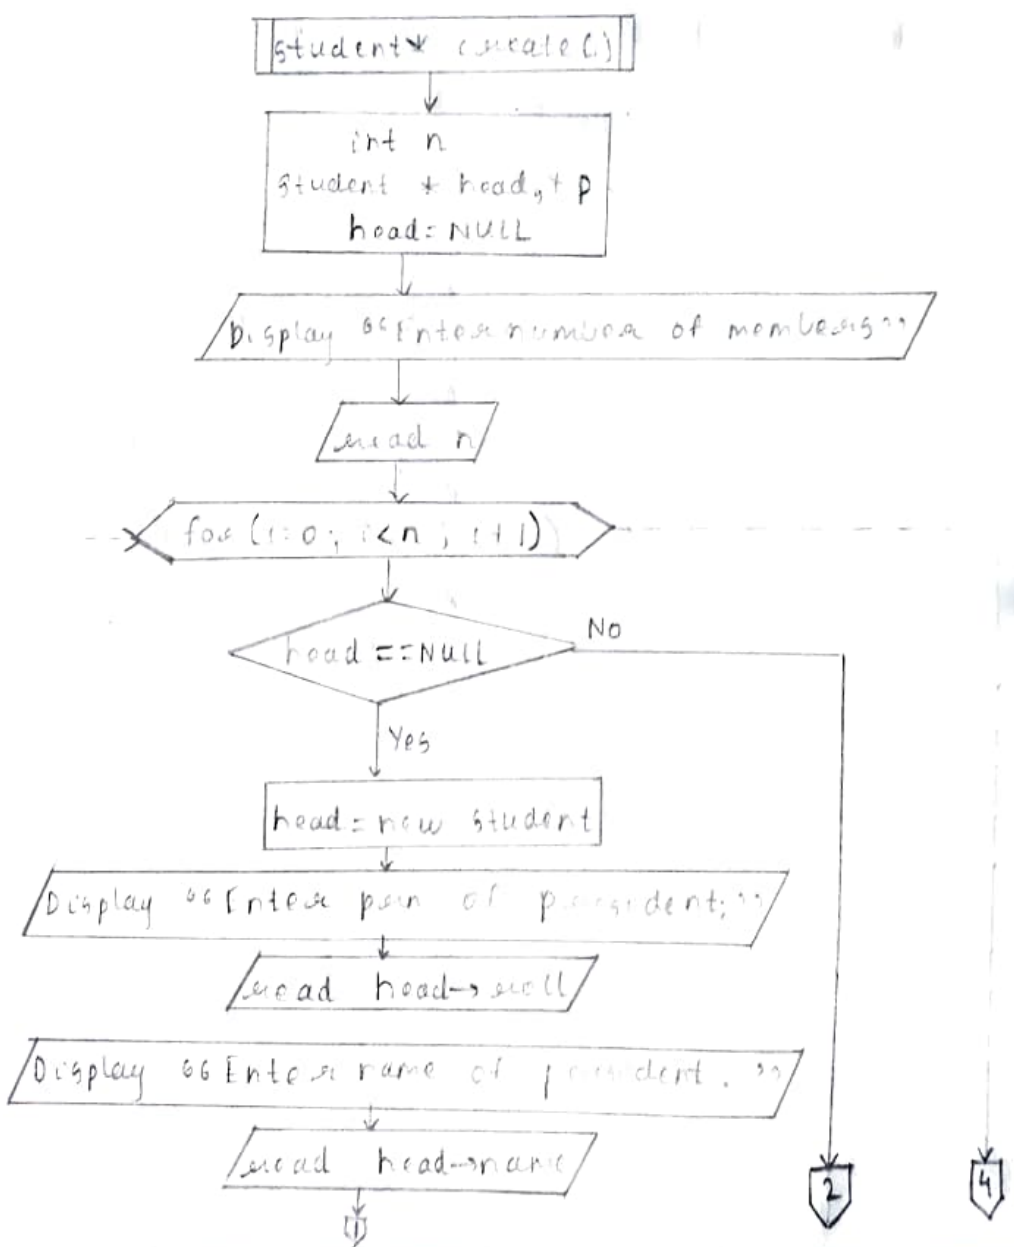 student* create()
int n
student * head, * p
head = NULL
Display "Enter number of members"
read n
for (i=0; i<n; i+1)
head == NULL
No
Yes
head = new student
Display "Enter prn of president;"
read head→roll
Display "Enter name of president."
read head→name
1
2
4